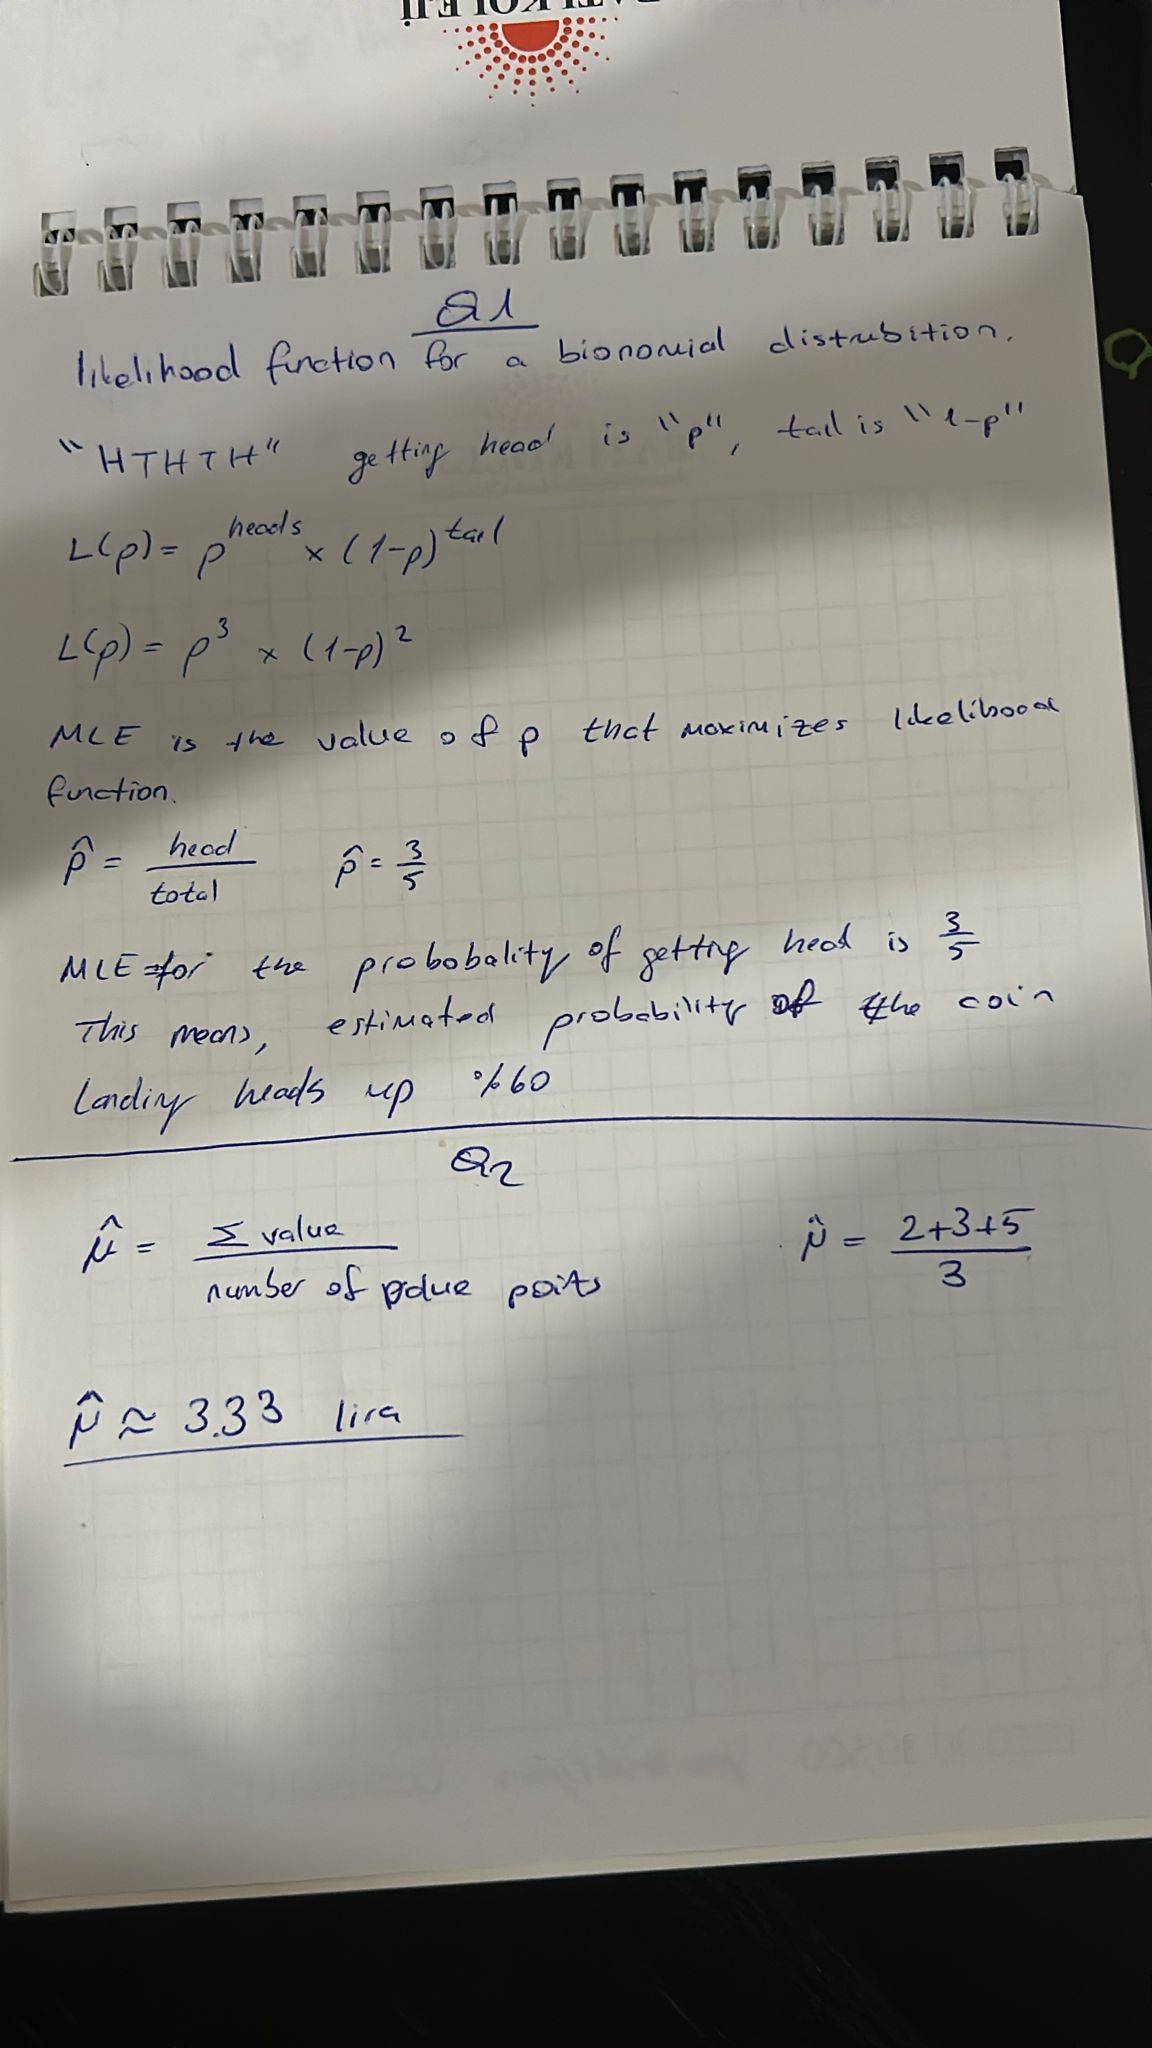 Q1
likelihood function for a bionomial distrubition.
"HTHTH" getting head is "p", tail is "1-p"
L(p) = p^heads × (1-p)^tail
L(p) = p^3 × (1-p)^2
MLE is the value of p that maximizes likelihood
function.
p̂ = head/total p̂ = 3/5
MLE for the probobality of getting head is 3/5
This means, estimated probability of the coin
Landing heads up %60
Q2
μ̂ = Σ value / number of points μ̂ = 2+3+5 / 3
μ̂ ≈ 3.33 lira